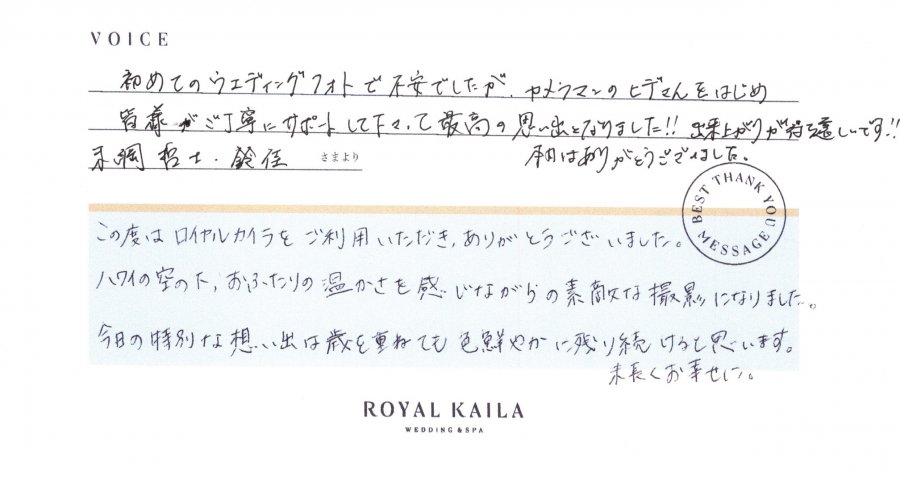 VOICE
初めてのウエディングフォトで不安でしたが、カメラマンのヒデさんをはじめ
皆様がご丁寧にサポートして下さって最高の思い出となりました!! 出来上がりが待ち遠しいです!!
本日はありがとうございました。
末綱 哲士・鈴佳 さまより
BEST THANK YOU MESSAGE
この度はロイヤルカイラをご利用いただき、ありがとうございました。
ハワイの空の下、おふたりの温かさを感じながらの素敵な撮影になりました。
今日の特別な想い出は歳を重ねても色鮮やかに残り続けると思います。
末長くお幸せに。
ROYAL KAILA
WEDDING & SPA